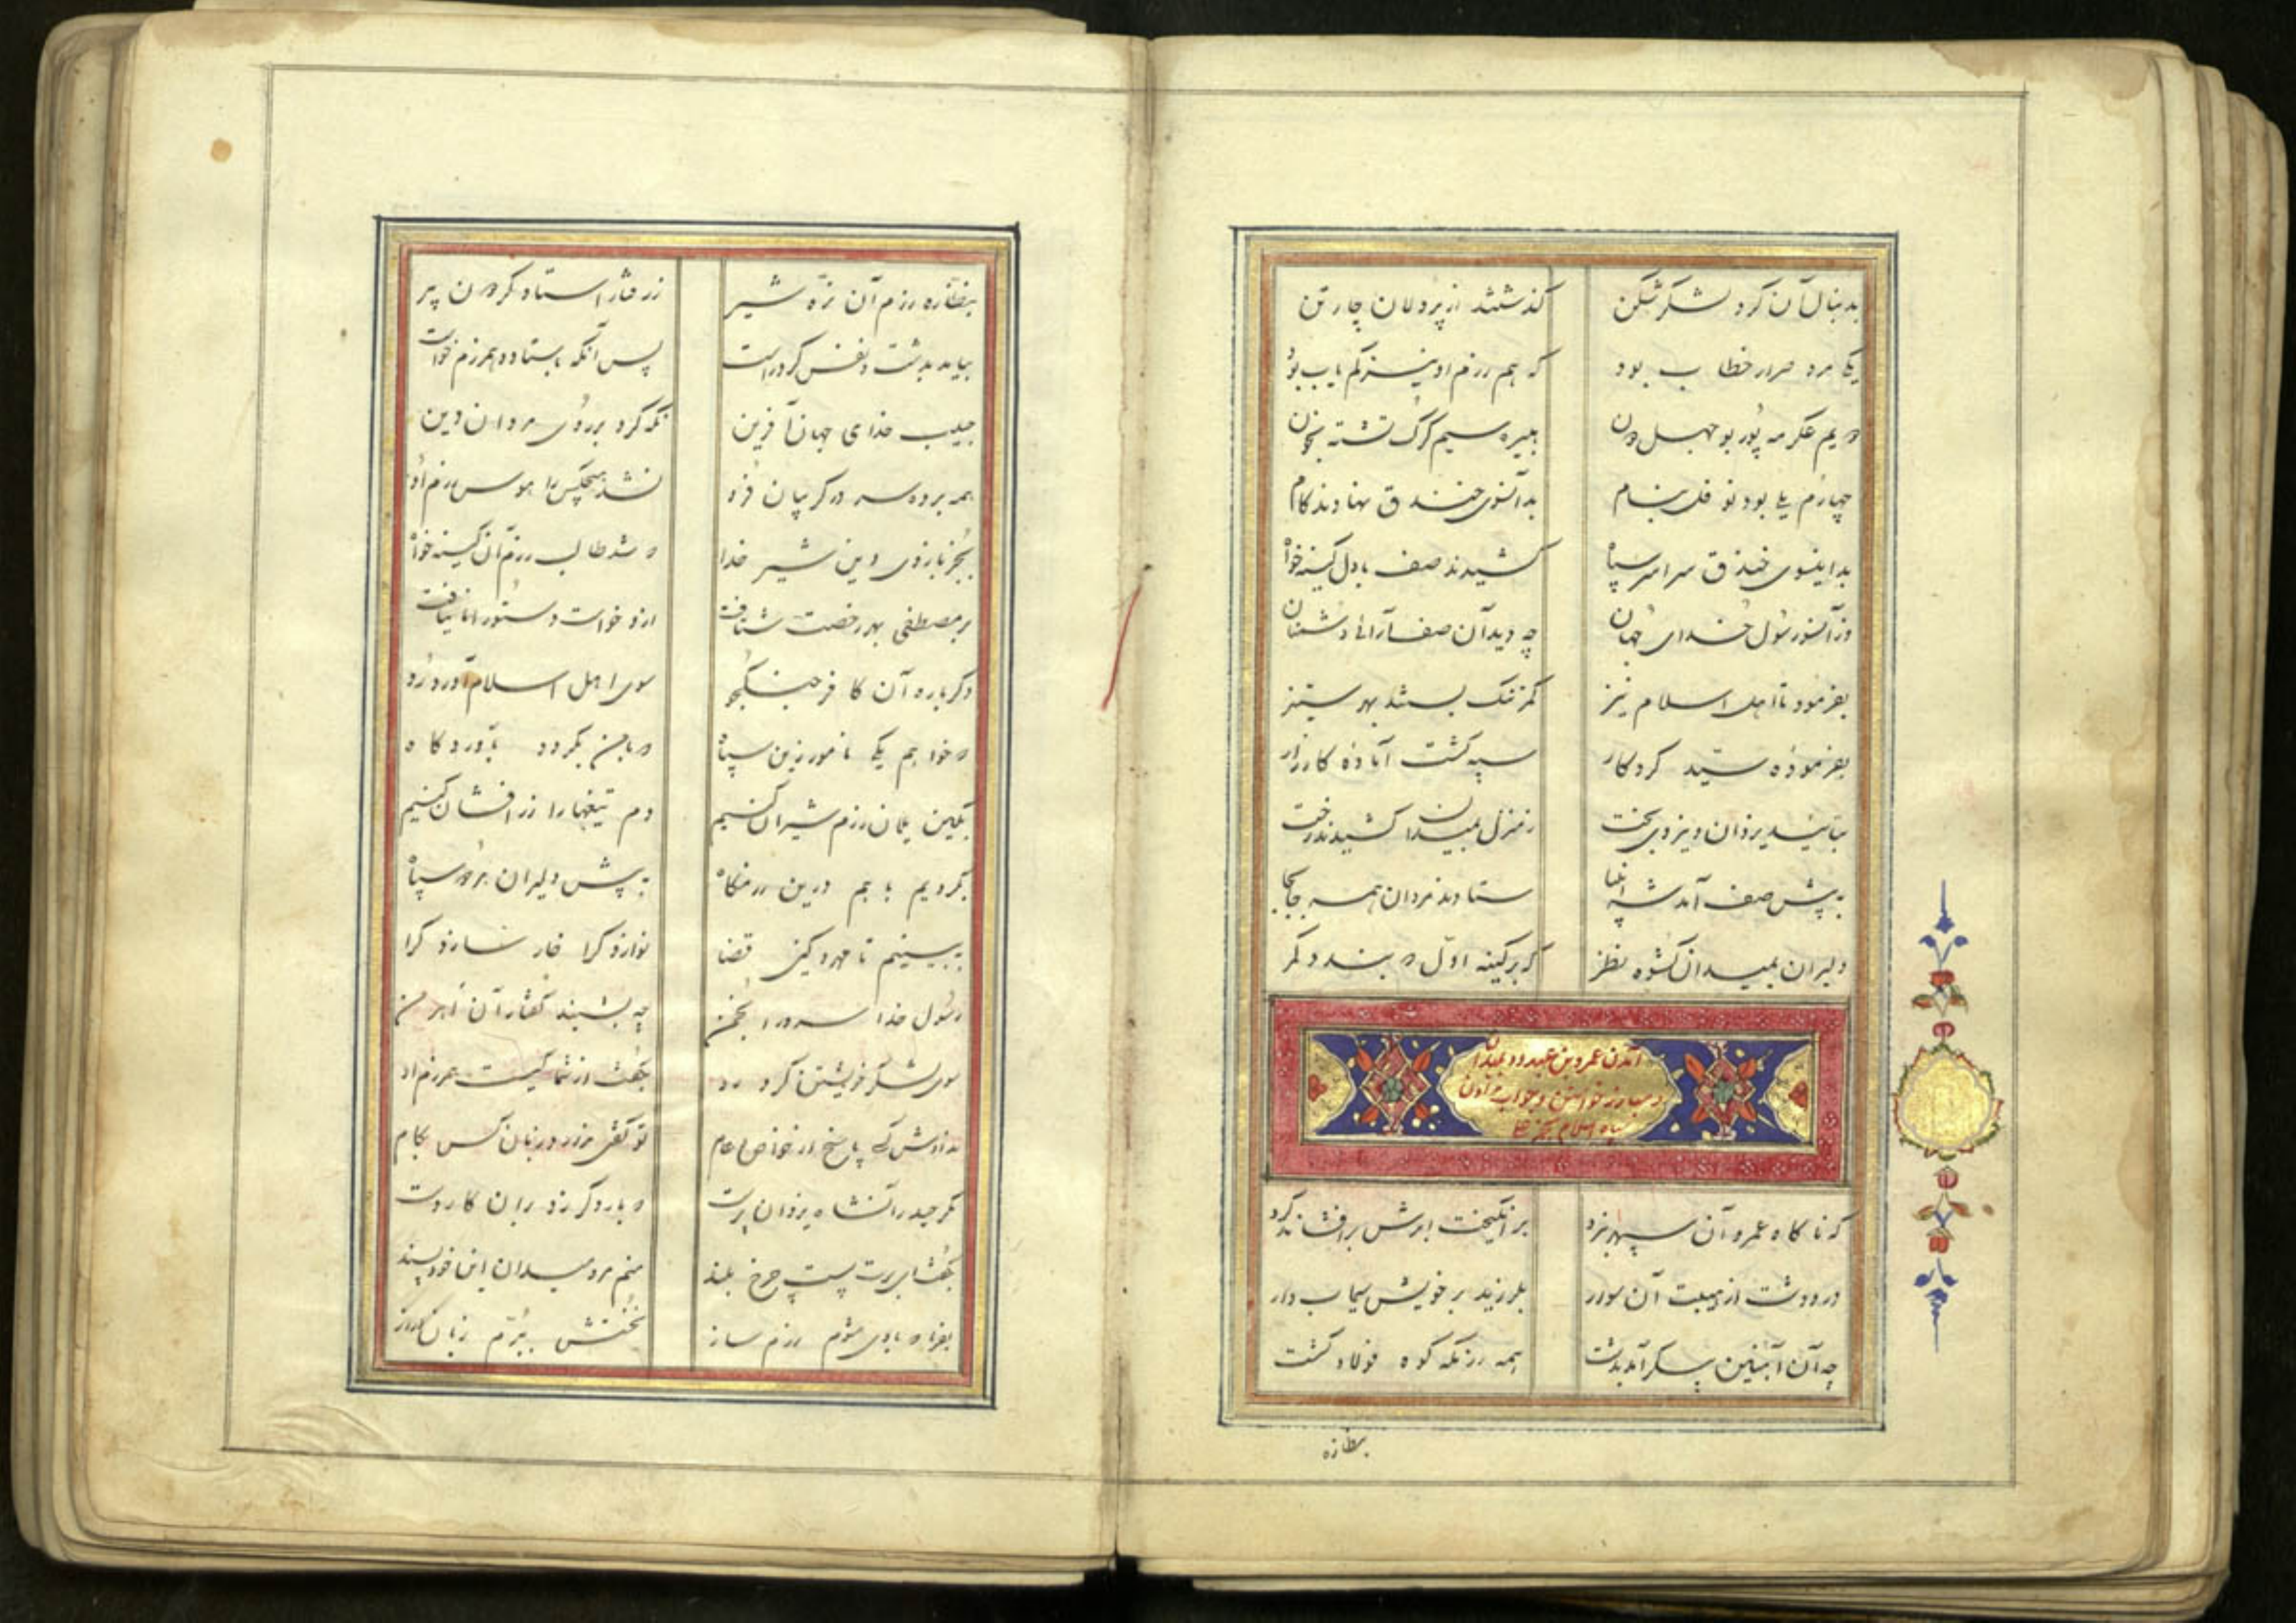 بدنبال آن کرد لشکر شکن گذشتند از پردلان چار تن
یکی مرد ضرار خطاب بود که هم رزم او نیز کم یاب بود
دویم عکرمه پور بوجهل دون هبیره سیم گرگ تشنه بخون
چهارم یلی بود نوفل بنام بدانسوی خندق نهادند کام
بداینسوی خندق سراسر سپاه کشیدند صف با دل کینه خواه
وز آنسو رسول خدای جهان چه دید آن صف آرائی دشمنان
بفرمود تا اهل اسلام نیز کمر تنک بستند بهر ستیز
بفرموده سید کردکار سپه کشت آماده کارزار
بتائید یزدان و نیروی بخت ز منزل بمیدان کشیدند رخت
به پیش صف آمد شه انبیا ستادند مردان همه جابجا
دلیران بمیدان کشوده نظر که بر کینه اول که بندد کمر
آمدن عمرو بن عبدود بمیدان
و مبارز خواستن و جواب ندادن
سپاه اسلام بجز
که ناکاه عمرو آن سپهر نبرد برانکیخت ابرش برافشاند کرد
در و دشت از هیبت آن سوار بلرزید بر خویش سیماب وار
چه آن آهنین پیکر آمد بدشت همه رزمکه کوه فولاد کشت
بنظاره
بنظاره رزم آن نره شیر ز رفتار استاد کردون پیر
بیامد بدشت و نفس کرد راست پس آنکه باستاد و همرزم خواست
حبیب خدای جهان آفرین نکه کرد بر روی مردان دین
همه برده سر در کریبان فرو نشد هیچکس را هوس رزم او
بجز بازوی دین شیر خدا که شد طالب رزم آن کینه خواه
بر مصطفی بهر رخصت شتافت ازو خواست دستور اما نیافت
دکرباره آن کافر جنکجو سوی اهل اسلام آورد رو
که خواهم یکی نامور زین سپاه که با من بکردد بآوردکاه
بکین یلان رزم شیران کنیم دم تیغها را زرافشان کنیم
بکردیم با هم درین رزمکاه به پیش دلیران هر دو سپاه
ببینیم تا مهر و کین قضا نوازد کرا خار سازد کرا
رسول خدا سرور انجمن چه بشنید کفتار آن اهرمن
سوی لشکر خویشتن کرد رو بکفت از شما کیست همرزم او
ندادش کسی پاسخ از خاص و عام تو کفتی نبد در زبان کس بکام
مکر حیدر آنشاه یزدان پرست که بارد کر زد بران کار دست
بکفت ای برت پست چرخ بلند منم مرد میدان این خودپسند
بفرما که با وی شوم رزم ساز نخستش ببرم زبان دراز